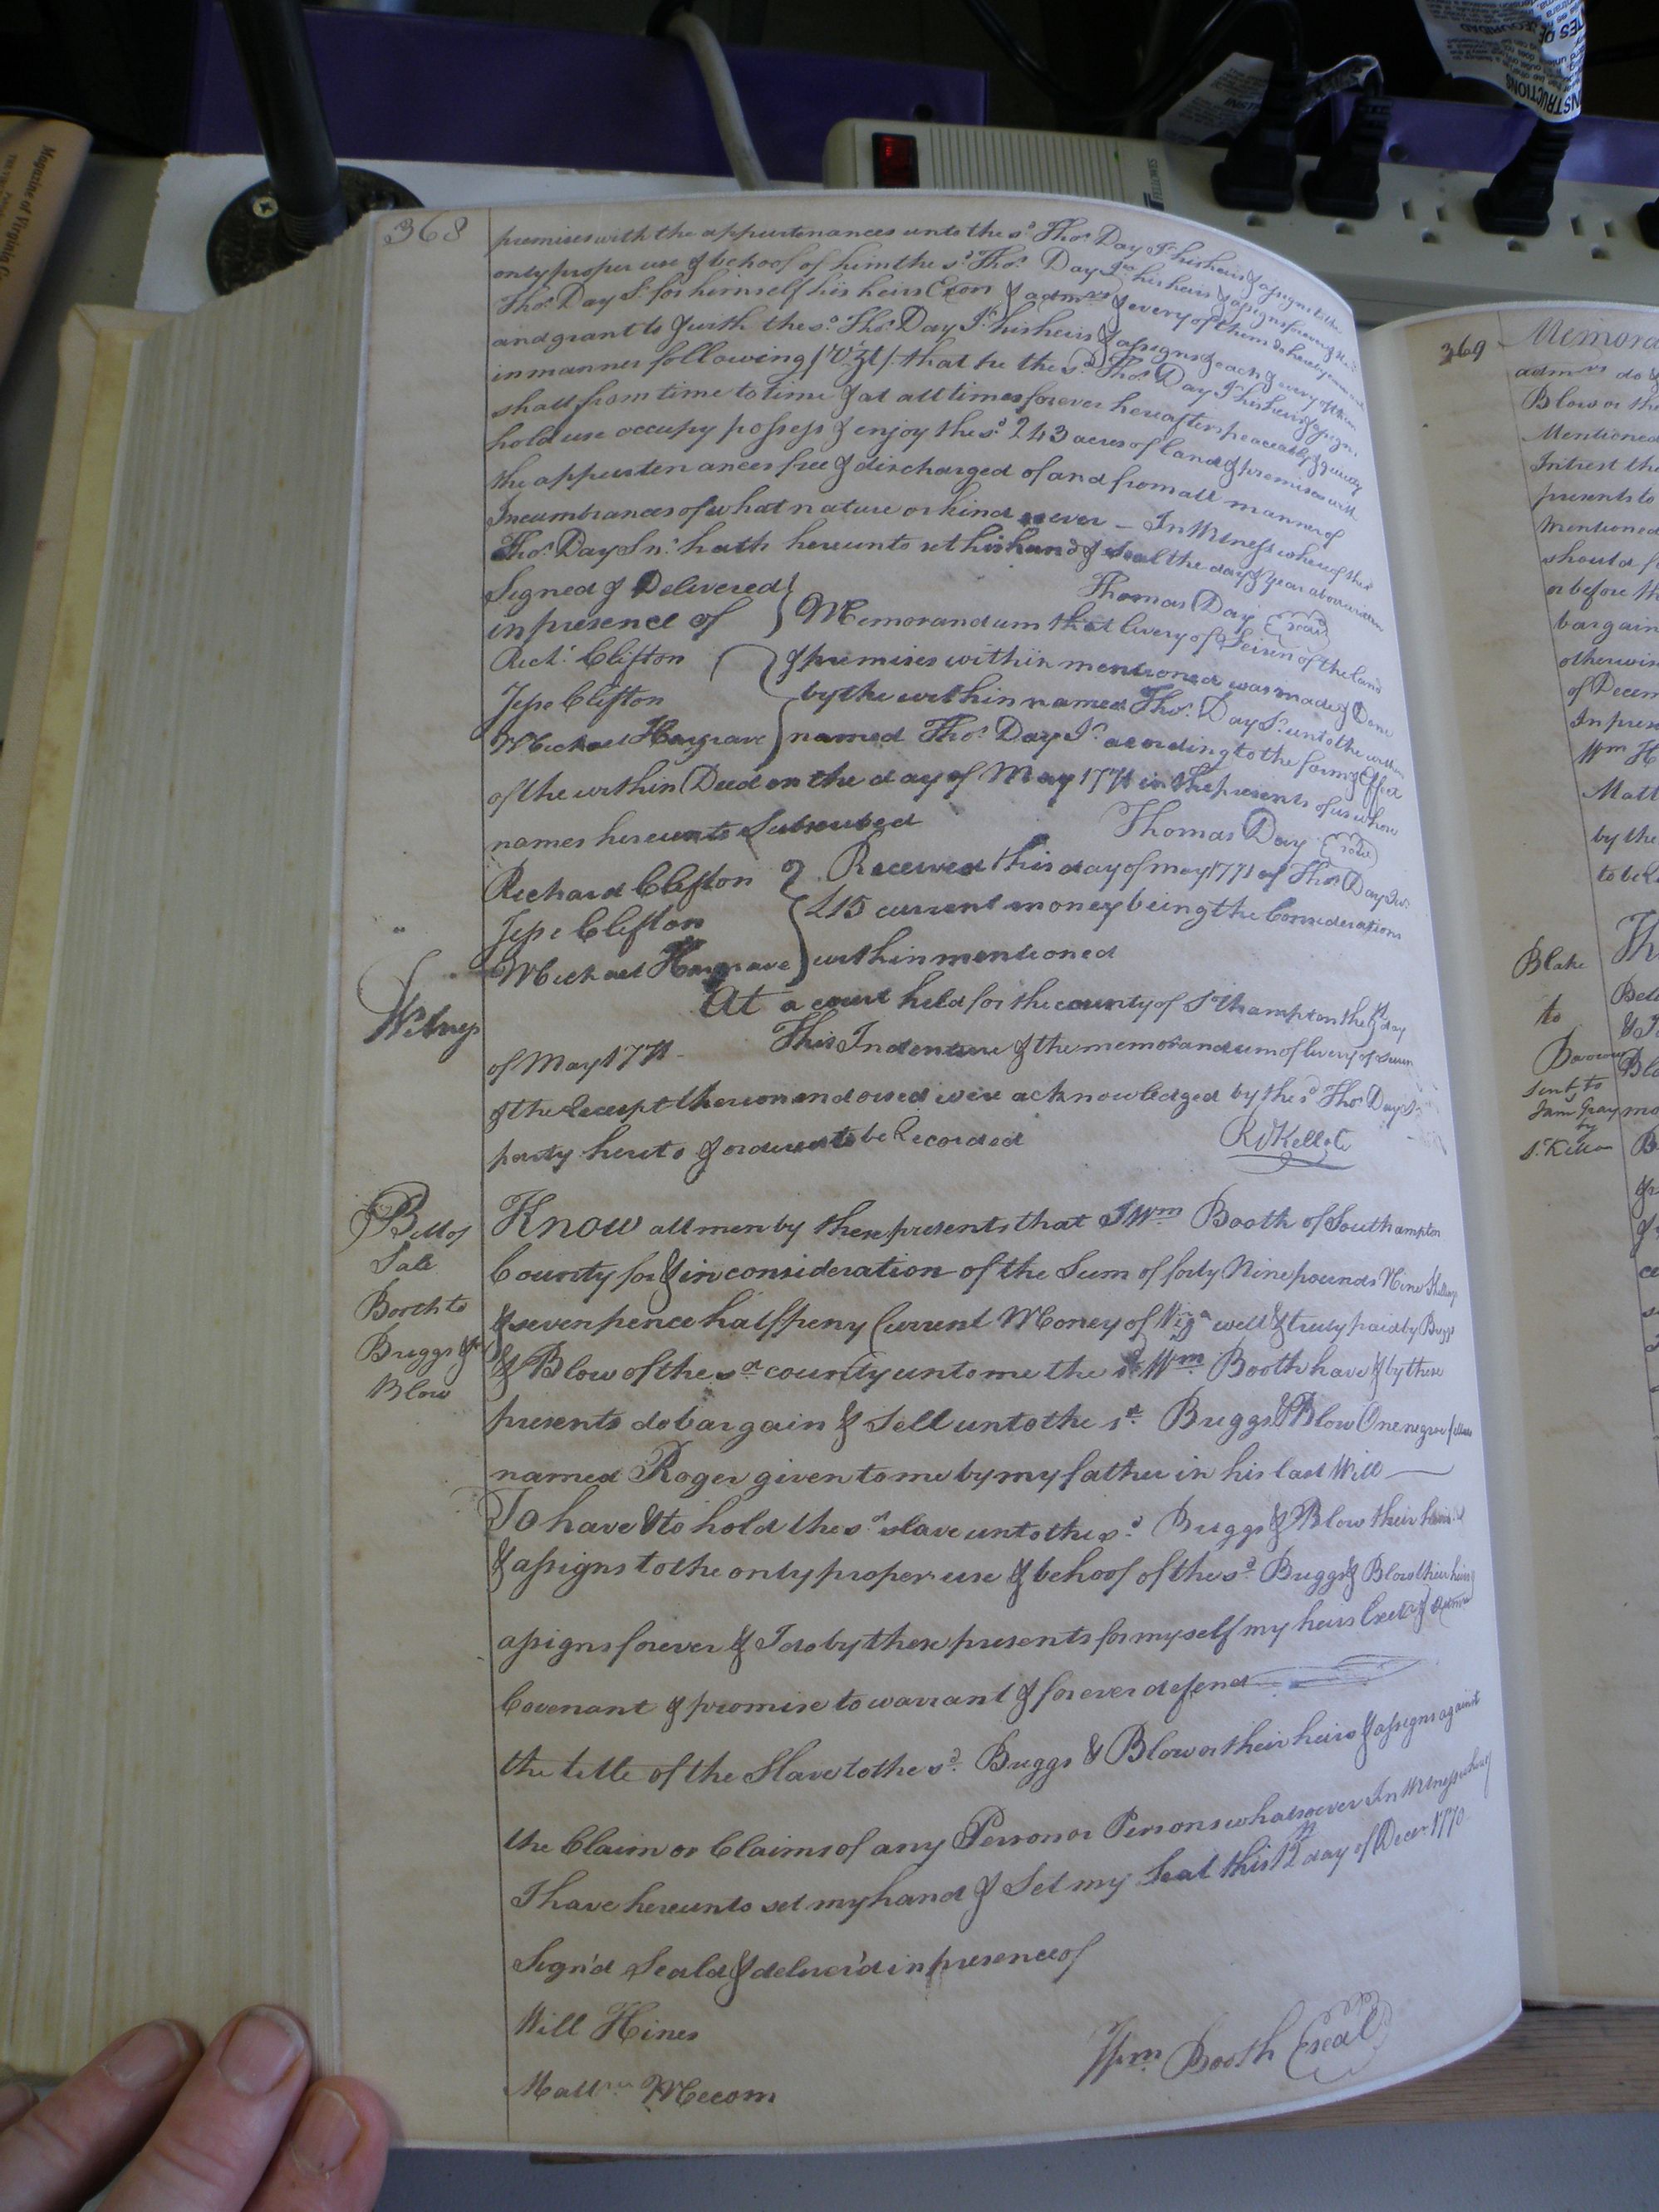 368
premises with the appurtenances unto the sd. Thos. Day Jr. his heirs & assigns to the
only proper use & behoof of him the sd. Thos. Day Jr. his heirs & assigns forever &
Thos. Day Sr. for himself his heirs Exon & admrs & every of them do hereby
and grant to & with the sd. Thos. Day Jr. his heirs & assigns & each & every of them
in manner following (Vizt) that he the sd. Thos. Day Jr. his heirs & assigns
shall from time to time & at all times forever hereafter peaceably & quietly
hold use occupy possess & enjoy the sd. 243 acres of land & premises with
the appurtenances free & discharged of and from all manner of
Incumbrances of what nature or kind soever — In Witness whereof the sd
Thos. Day Snr. hath hereunto set his hand & seal the day & year above written
Signed & Delivered
in presence of
Thomas Day (seal)
Richd. Clifton
Jesse Clifton
Michael Hargrave
Memorandum that livery of Seisen of the land
& premises within mentioned was made & Done
by the within named Thos. Day Sr. unto the within
named Thos. Day Jr. acording to the form & Effect
of the within Deed on the day of May 1771 in the presents of us whose
names hereunto Subscribed
Thomas Day (seal)
Richard Clifton
Jesse Clifton
Michael Hargrave
Received this day of may 1771 of Thos. Day Jnr.
£15 current money being the Considerations
within mentioned
Witness
At a court held for the county of So.thampton the day
of May 1771 — This Indenture & the memorandum of livery of seisen
& the Receipt thereon endorsed were acknowledged by the sd. Thos. Day Sr.
party hereto & ordered to be Recorded
R Kello C
Bill of
Sale
Booth to
Briggs &
Blow
Know all men by these presents that I Wm Booth of Southampton
County for & in consideration of the Sum of forty Nine pounds Nine Shillings
& seven pence halfpeny Current Money of Virga well & truly paid by Briggs
& Blow of the sd county unto me the sd Wm Booth have & by these
presents do bargain & Sell unto the sd. Briggs & Blow One negroe fellow
named Roger given to me by my father in his last Will —
To have & to hold the sd slave unto the sd. Briggs & Blow their heirs
& assigns to the only proper use & behoof of the sd. Briggs & Blow their heirs
assigns forever & I do by these presents for myself my heirs Exetrs & admrs
Covenant & promise to warrant & forever defend
the title of the Slave to the sd. Briggs & Blow or their heirs & assigns against
the Claim or Claims of any Person or Persons whatsoever In Witness whereof
I have hereunto set my hand & Set my Seal this 12th day of Decr. 1770
Sign'd Seald & deliver'd in presence of
Will Hines
Matthw Mecom
Wm Booth (seal)
369
Memora
admrs do
Blow or the
Mentioned
Intrest the
presents to
Mentioned
should f
or before th
bargain
otherwis
of Decem
In prese
Wm H
Matt
by the
to be R
Blake
to
Barrow
sent to
Jam Gray
by
S. Kello
Th
FELLOWES
INSTRUCTIONS
Magazine of Virginia G